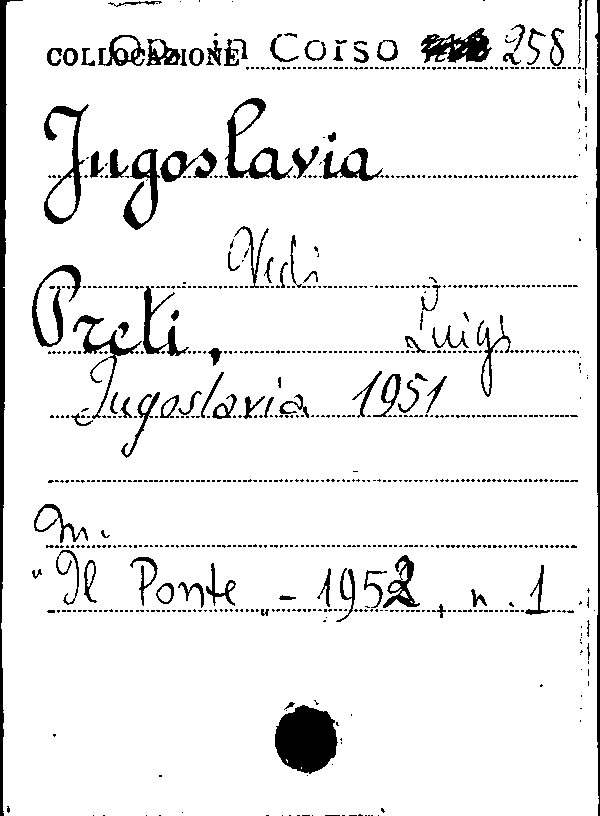 COLLOCAZIONE Op. in Corso 258
Jugoslavia
Vedi
Preti, Luigi
Jugoslavia 1951
In.
"Il Ponte" - 1952, n. 1